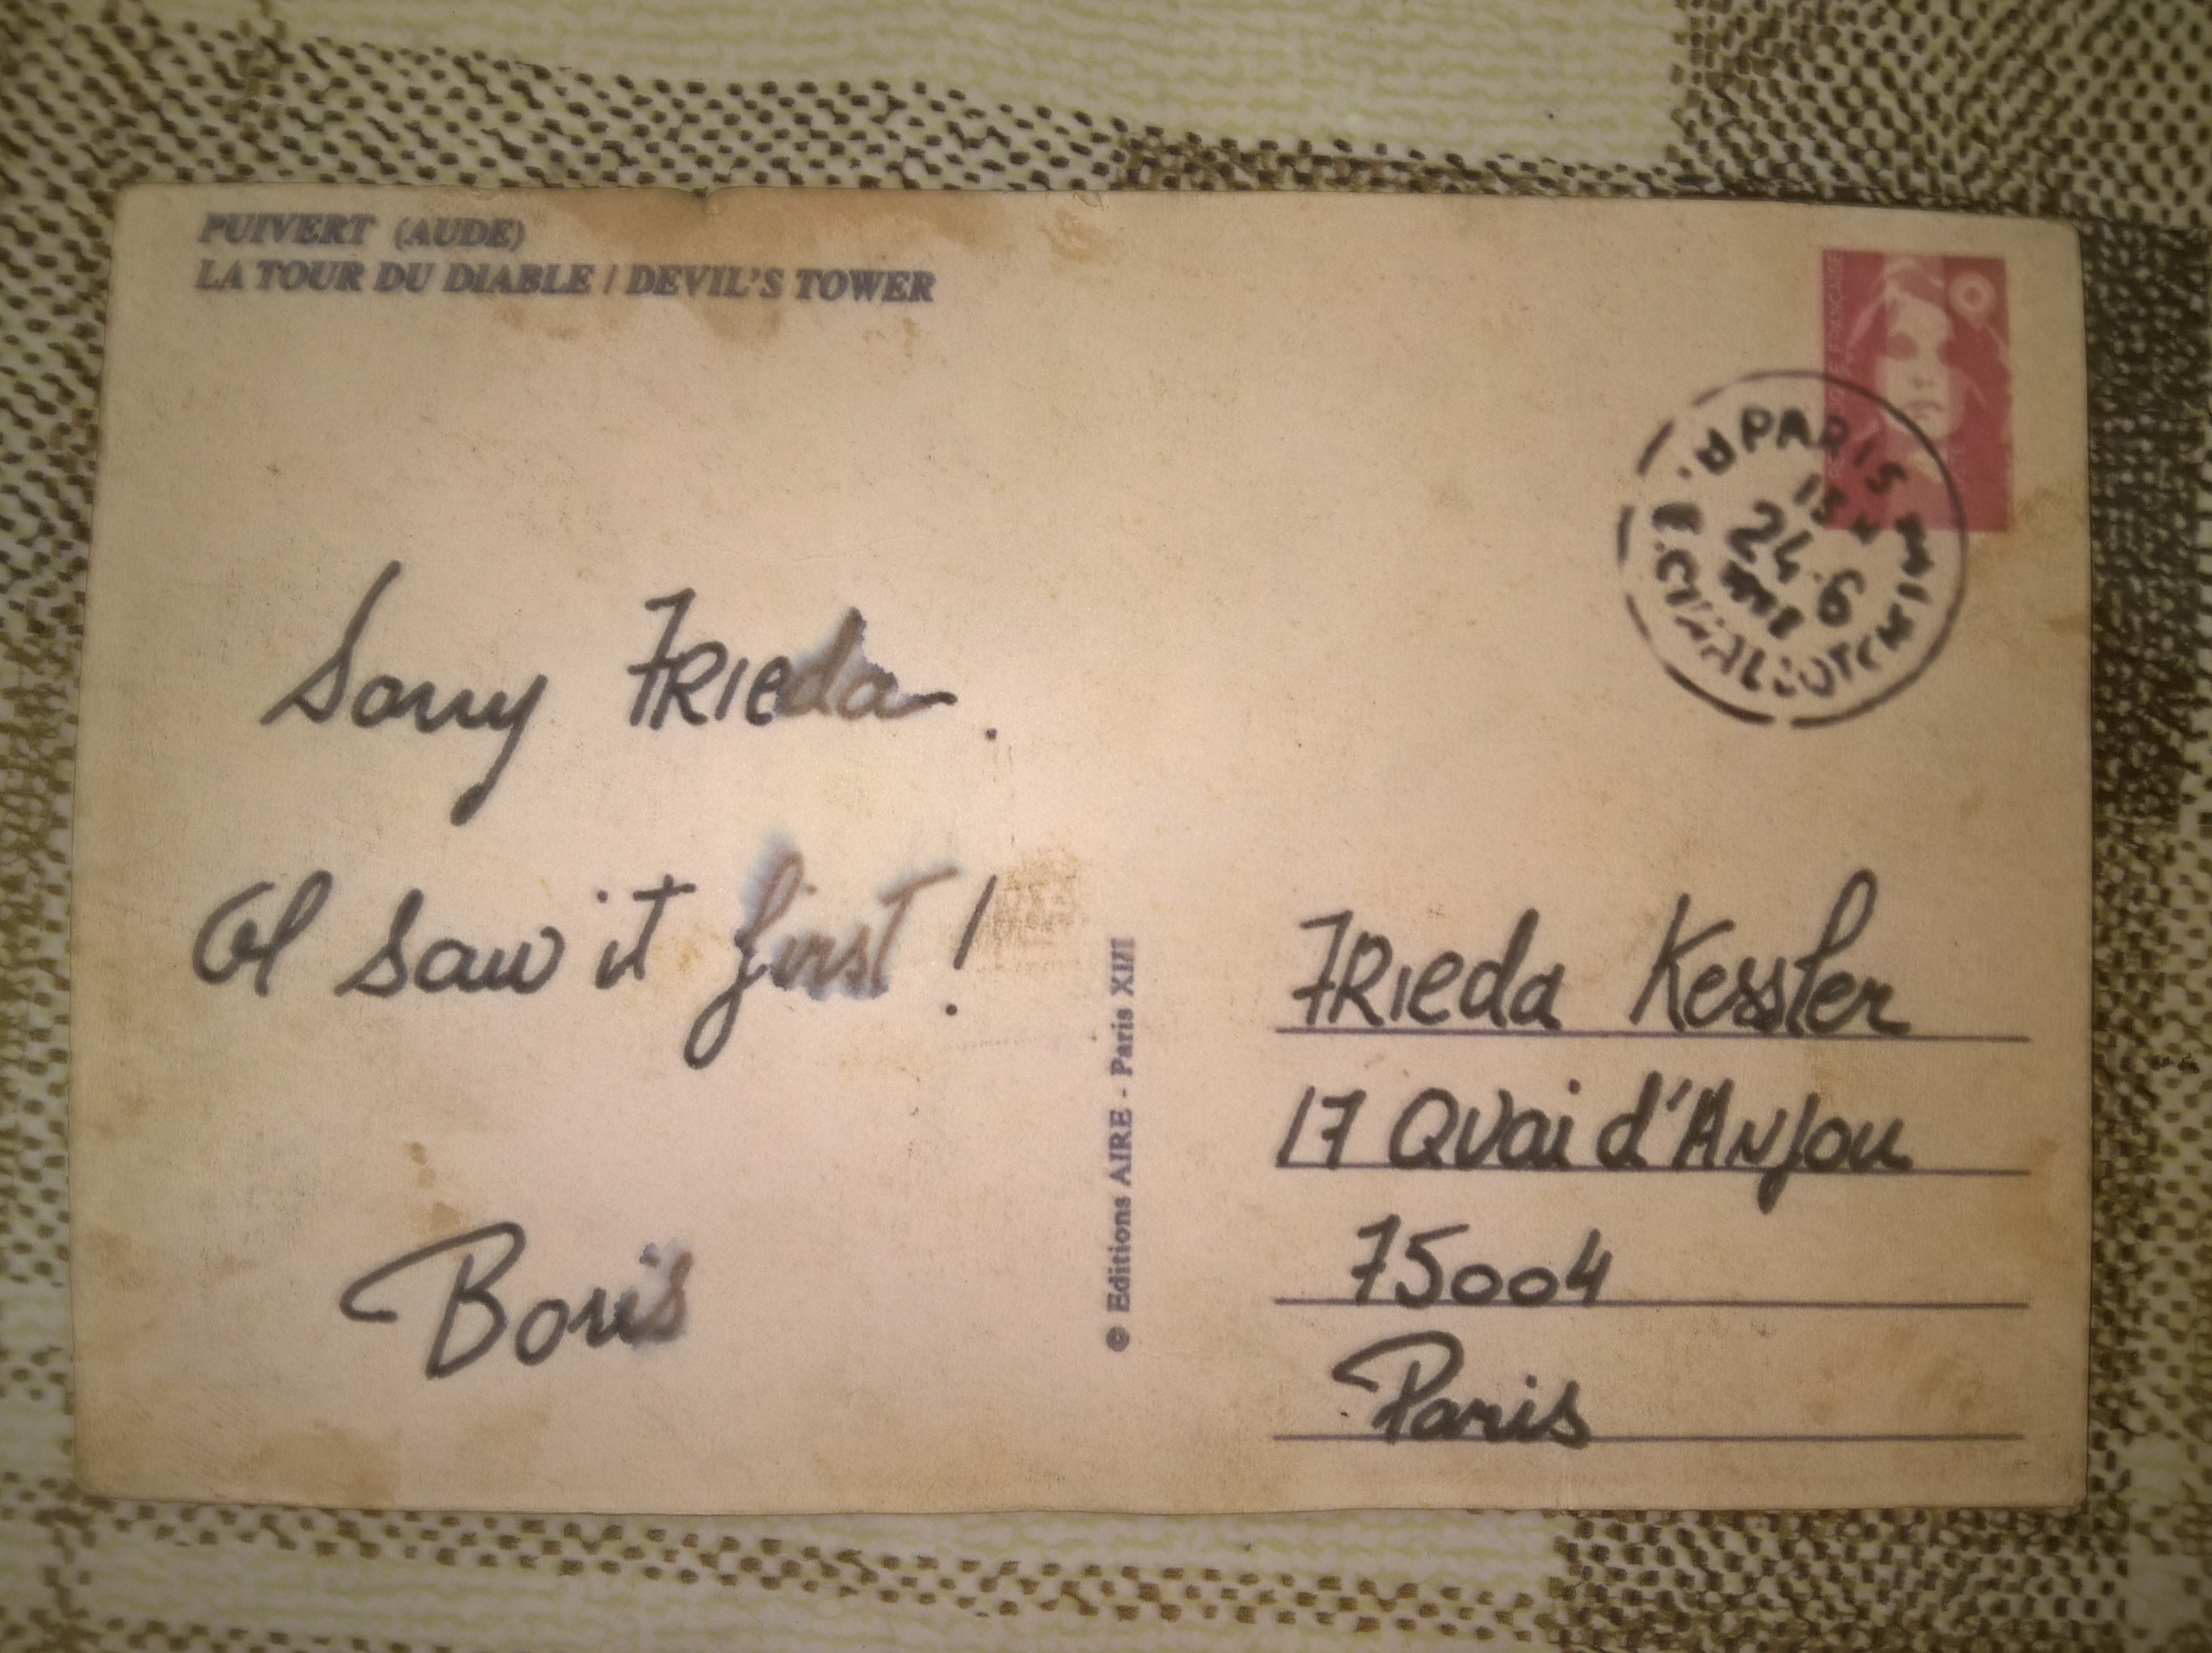 PUIVERT (AUDE)
LA TOUR DU DIABLE / DEVIL'S TOWER
PARIS
24-6
Sorry Frieda.
I saw it first!
Boris
© Editions AIRE - Paris XIII
Frieda Kessler
17 Quai d'Anjou
75004
Paris